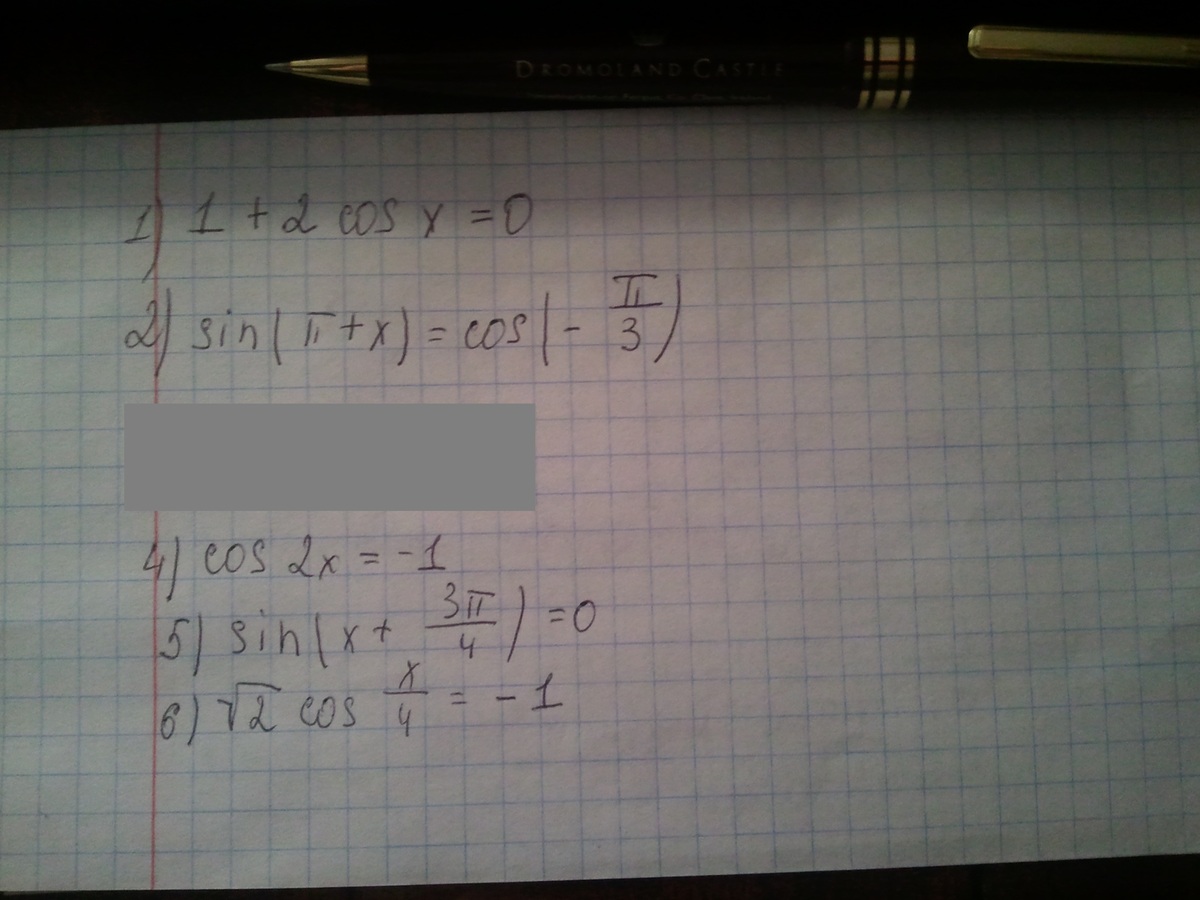 DROMOLAND CASTLE
1) 1 + 2 cos x = 0
2) sin(π + x) = cos(- π/3)
4) cos 2x = -1
5) sin(x + 3π/4) = 0
6) √2 cos x/4 = -1